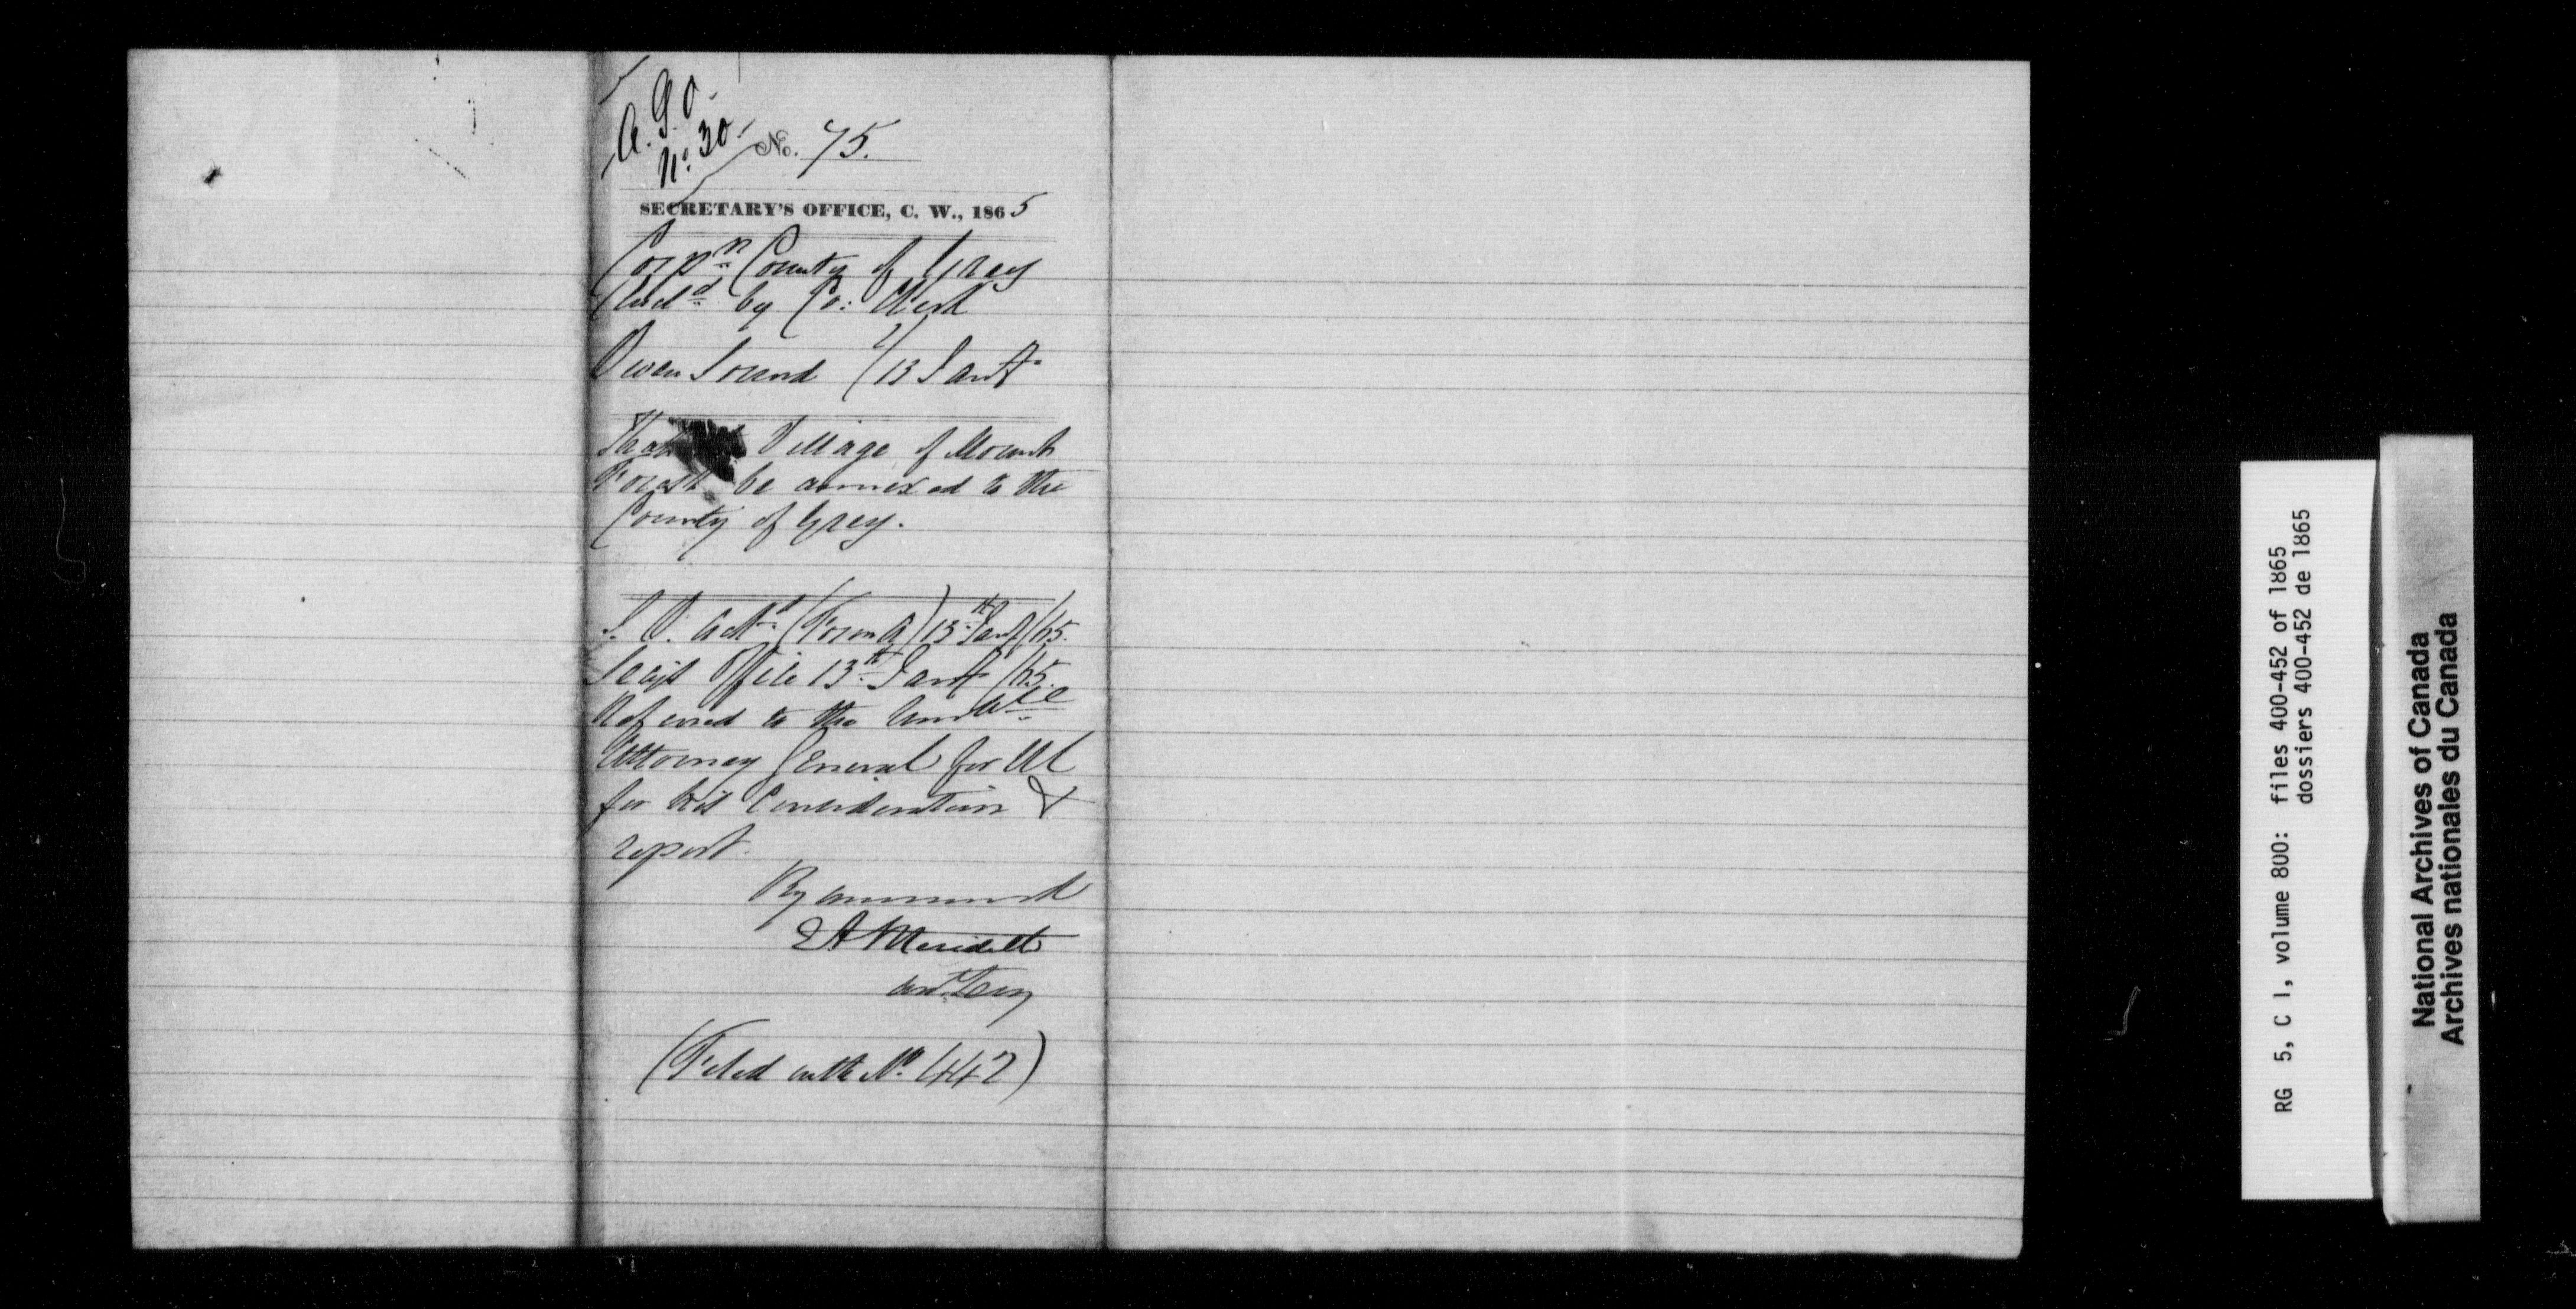 A. G. O.
No. 30.
No. 75.
SECRETARY'S OFFICE, C. W., 1865
Corpn County of Grey
by Co: Clerk
Owen Sound 13 Jany
That Village of Mount
Forest be annexed to the
County of Grey.
(Form A) 13th Jany/65.
Secy's Office 13th Jany/65.
Referred to the Honble
Attorney General for UC
for his Consideration &
report.
By command
E A Meredith
Asst. Secy
(Filed with No. 442)
RG 5, C 1, volume 800: files 400-452 of 1865
dossiers 400-452 de 1865
National Archives of Canada
Archives nationales du Canada